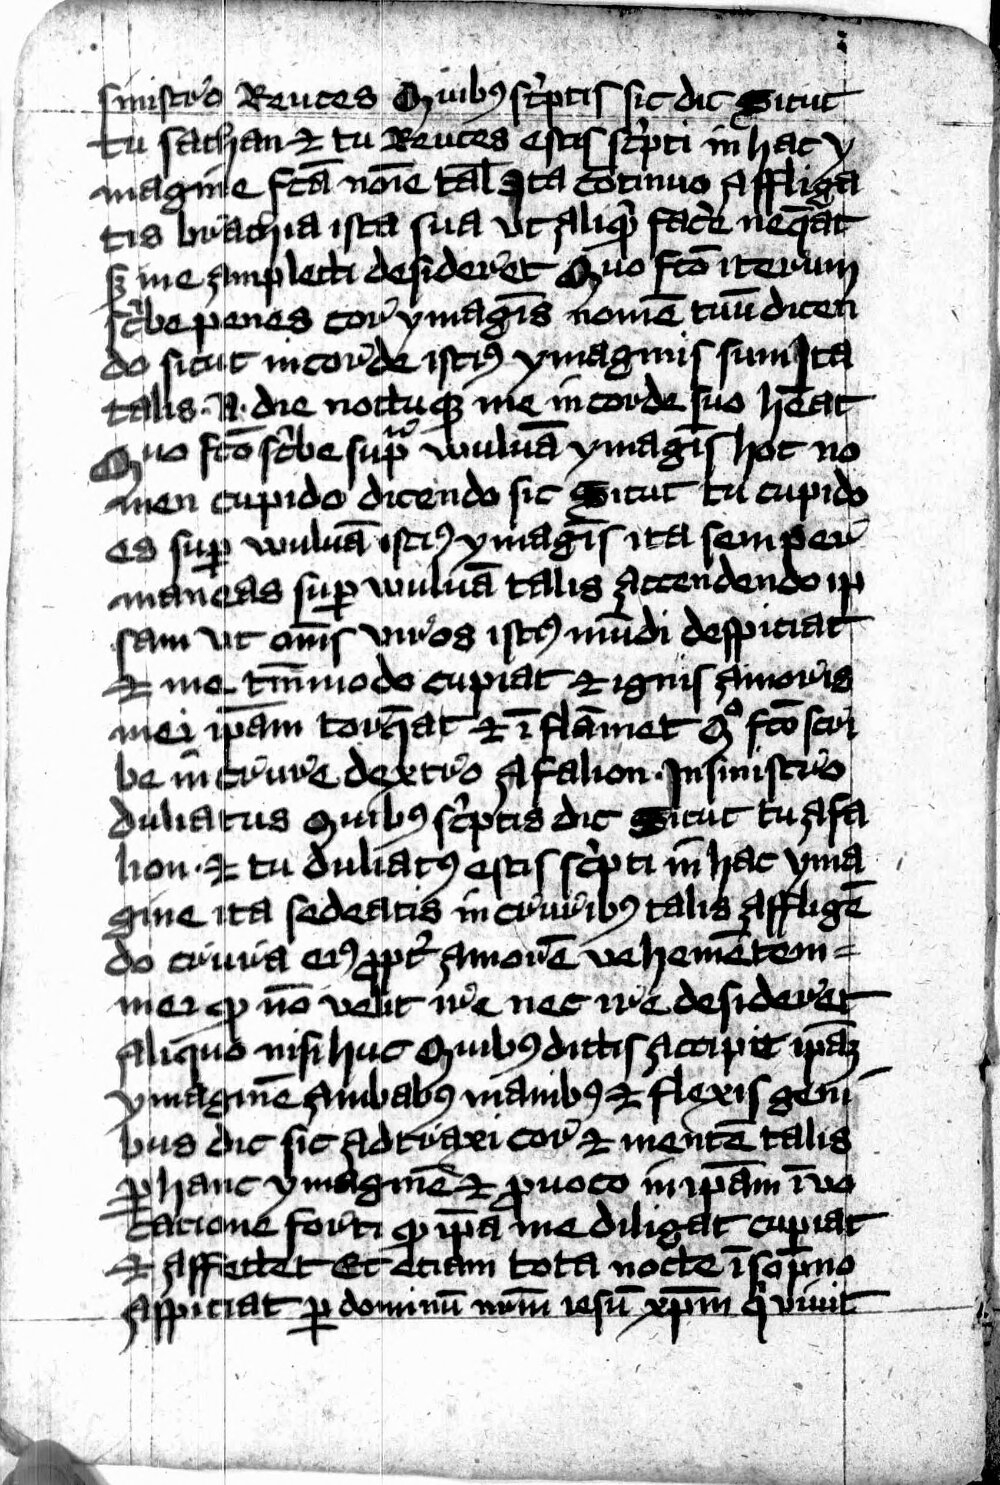 sinistro Reuces Quibꝰ sc̑ptis sic dic Sicut
tu sathan ⁊ tu Reuces estis sc̑pti in hac y
magine fc̄a no̅ie tal̄ Ita co̅tinuo affliga
tis brachia ista sua vt aliq̑ face̅ neq̅at
sꝫ me amplecti desideret Quo fc̄o iterum
sc̑be penes cor ymagi̅s nome̅ tuu̅ dicen
do sicut in corde istiꝰ ymaginis sum Ita
talis .N. die noctuqꝫ me in corde suo he̅at
Quo fc̄o sc̑be suꝑ wulua̅ ymagi̅s hoc no
men cupido dicendo sic Sicut tu cupido
es suꝑ wulua̅ istiꝰ ymagi̅s ita semper
maneas suꝑ wulua̅ talis accendendo ip
sam vt om̅s viros istiꝰ mu̅di despiciat
⁊ me tm̅modo cupiat ⁊ ignis amoris
mei ip̅am torq̅at ⁊ i̅flamet Qͦ fc̄o scri
be in crure dextro Afalion . In sinistro
duliatus Quibꝰ sc̑ptis dic Sicut tu Afa
lion . ⁊ tu duliatꝰ estis sc̑pti in hac yma
gine ita sedeatis in cruribꝰ talis afflige̅
do crura eiꝰ ꝓpt̑ amore̅ veheme̅tem =
mei ꝙ no̅ velit ire nec ire desideret
aliquo nisi huc Quibꝰ dictis accipit ip̅aꝫ
ymagine̅ ambabꝰ manibꝰ ⁊ flexis geni
bus dic sic adtraxi cor ⁊ mente̅ talis
ꝑ hanc ymagine̅ ⁊ ꝓuoco in ip̅am i̅uo
catione forti ꝙ ip̅a me diligat cupiat
⁊ affectet Et etiam tota nocte i̅ sop̅no
aspiciat ꝑ dominu̅ nr̅m iesu̅ xp̅m q̑ viuit